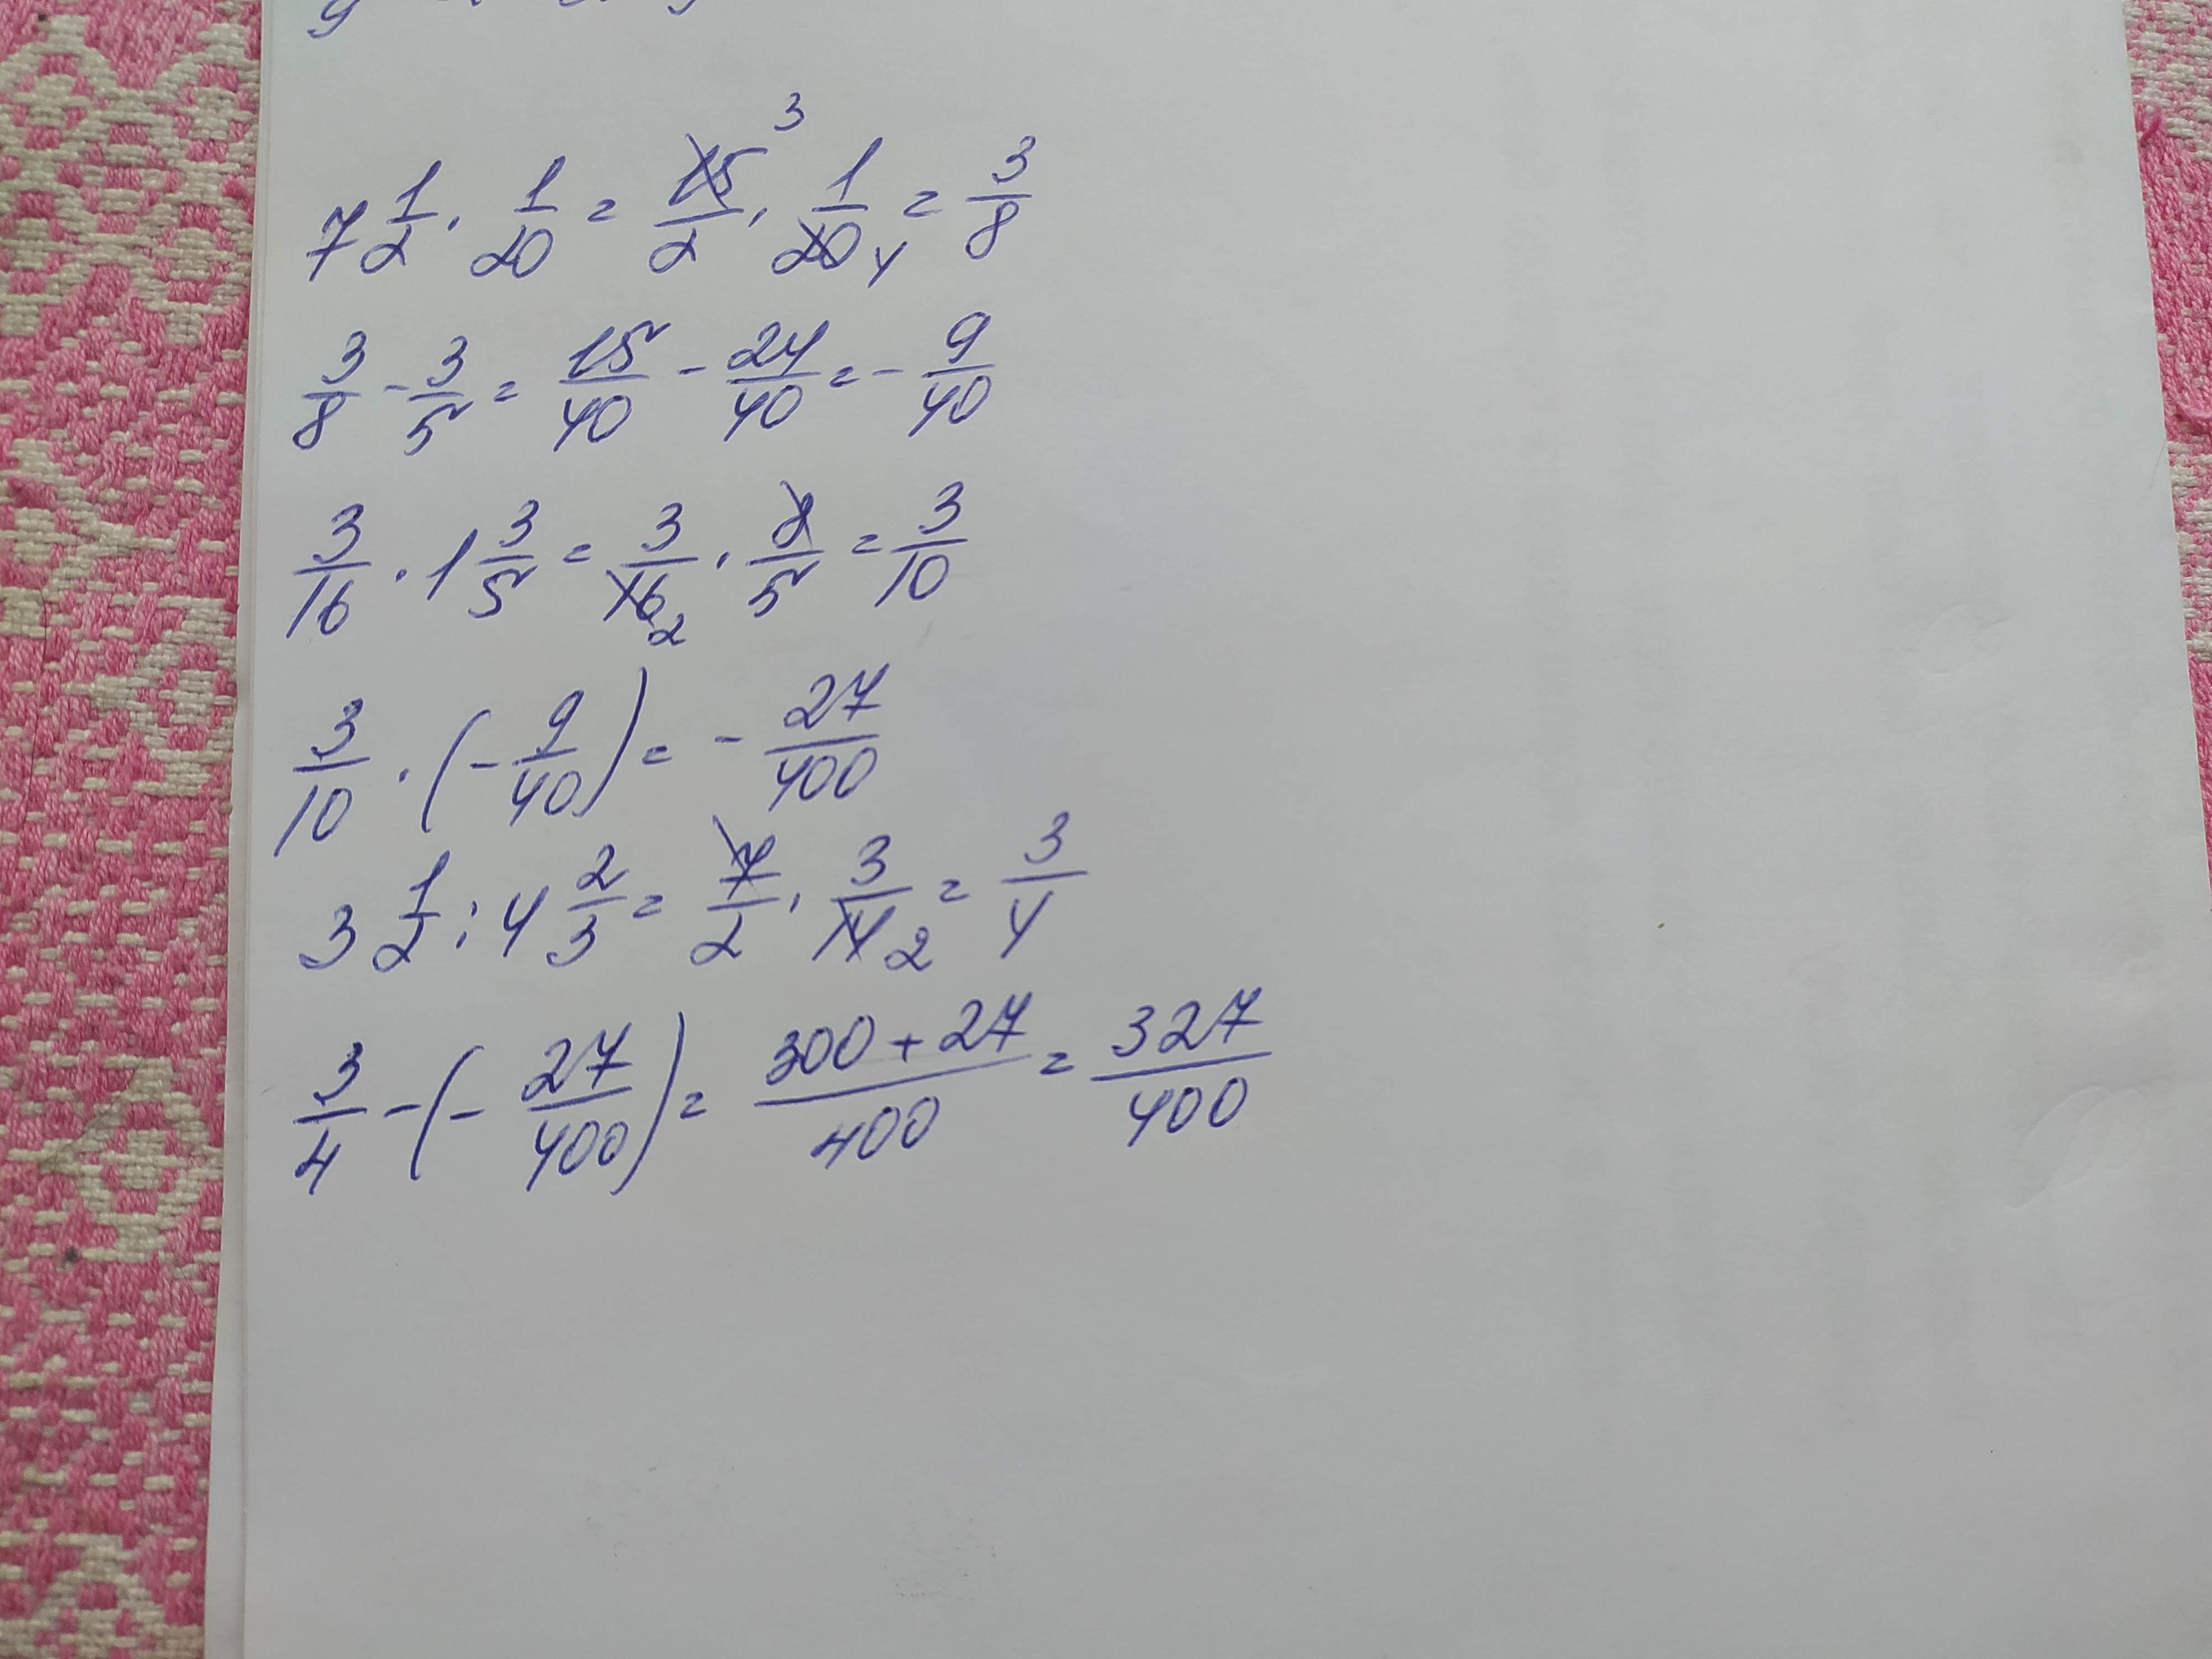 7 1/2 · 1/20 = 15/2 3 · 1/20 4 = 3/8
3/8 - 3/5 = 15/40 - 24/40 = - 9/40
3/16 · 1 3/5 = 3/16 2 · 8/5 = 3/10
3/10 · (- 9/40) = - 27/400
3 1/2 : 4 2/3 = 7/2 · 3/14 2 = 3/4
3/4 - (- 27/400) = 300 + 27/400 = 327/400